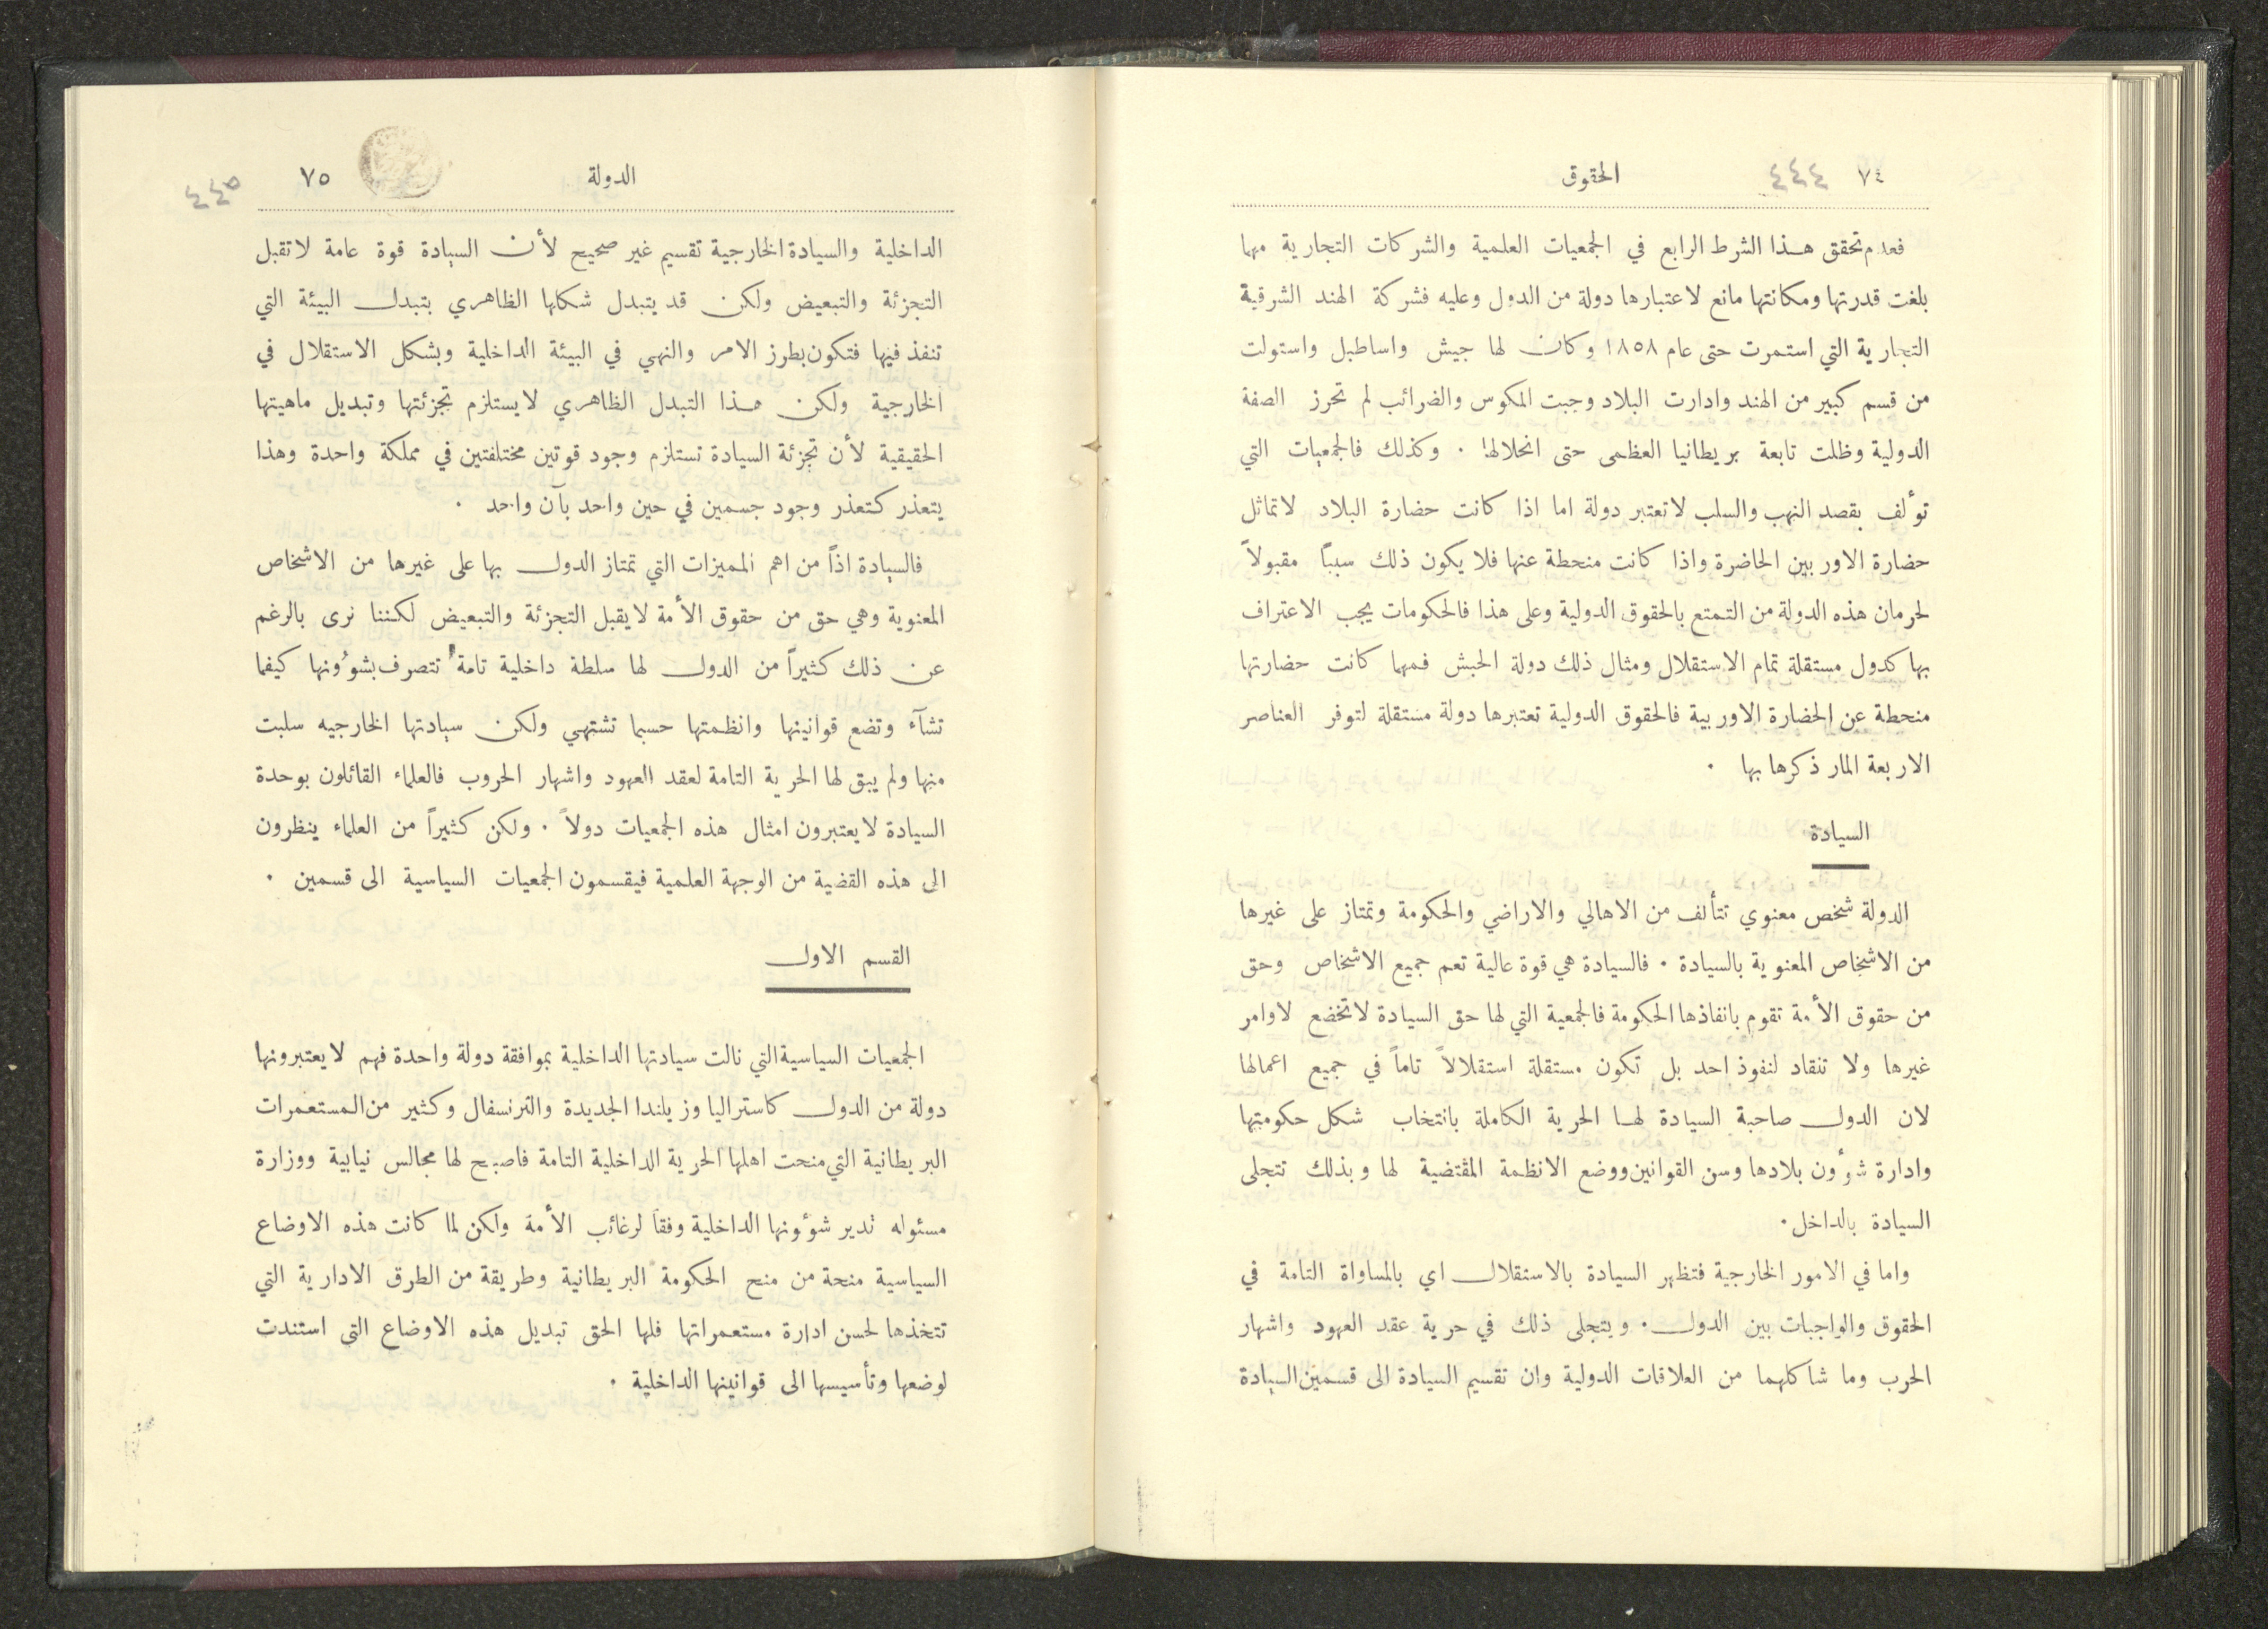 ٧٤ ٤٤٤ الحقوق
فعدم تحقق هذا الشرط الرابع في الجمعيات العلمية والشركات التجارية مهما
بلغت قدرتها ومكانتها مانع لاعتبارها دولة من الدول وعليه فشركة الهند الشرقية
التجارية التي استمرت حتى عام ١٨٥٨ وكان لها جيش واساطيل واستولت
من قسم كبير من الهند وادارت البلاد وجبت المكوس والضرائب لم تحرز الصفة
الدولية وظلت تابعة بريطانيا العظمى حتى انحلالها . وكذلك فالجمعيات التي
تؤلف بقصد النهب والسلب لا تعتبر دولة اما اذا كانت حضارة البلاد لا تماثل
حضارة الاوربين الحاضرة واذا كانت منحطة عنها فلا يكون ذلك سبباً مقبولاً
لحرمان هذه الدولة من التمتع بالحقوق الدولية وعلى هذا فالحكومات يجب الاعتراف
بها كدول مستقلة تمام الاستقلال ومثال ذلك دولة الحبش فمهما كانت حضارتها
منحطة عن الحضارة الاوربية فالحقوق الدولية تعتبرها دولة مستقلة لتوفر العناصر
الاربعة المار ذكرها بها .
السيادة
الدولة شخص معنوي تتألف من الاهالي والاراضي والحكومة وتمتاز على غيرها
من الاشخاص المعنوية بالسيادة . فالسيادة هي قوة عالية تعم جميع الاشخاص وحق
من حقوق الأمة تقوم بانفاذها الحكومة فالجمعية التي لها حق السيادة لا تخضع لاوامر
غيرها ولا تنقاد لنفوذ احد بل تكون مستقلة استقلالاً تاماً في جميع اعمالها
لان الدول صاحبة السيادة لها الحرية الكاملة بانتخاب شكل حكومتها
وادارة شؤون بلادها وسن القوانين ووضع الانظمة المقتضية لها وبذلك تتجلى
السيادة بالداخل .
واما في الامور الخارجية فتظهر السيادة بالاستقلال اي بالمساواة التامة في
الحقوق والواجبات بين الدول . ويتجلى ذلك في حرية عقد العهود واشهار
الحرب وما شاكلهما من العلاقات الدولية وان تقسيم السيادة الى قسمين السيادة
الدولة ٧٥ ٤٤٥
الداخلية والسيادة الخارجية تقسيم غير صحيح لأن السيادة قوة عامة لا تقبل
التجزئة والتبعيض ولكن قد يتبدل شكلها الظاهري بتبدل البيئة التي
تنفذ فيها فتكون بطرز الامر والنهي في البيئة الداخلية وبشكل الاستقلال في
الخارجية ولكن هذا التبدل الظاهري لا يستلزم تجزئتها وتبديل ماهيتها
الحقيقية لأن تجزئة السيادة تستلزم وجود قوتين مختلفتين في مملكة واحدة وهذا
يتعذر كتعذر وجود جسمين في حين واحد بآن واحد .
فالسيادة اذاً من اهم المميزات التي تمتاز الدول بها على غيرها من الاشخاص
المعنوية وهي حق من حقوق الأمة لا يقبل التجزئة والتبعيض لكننا نرى بالرغم
عن ذلك كثيراً من الدول لها سلطة داخلية تامة تتصرف بشؤونها كيفما
تشآء وتضع قوانينها وانظمتها حسبما تشتهي ولكن سيادتها الخارجيه سلبت
منها ولم يبق لها الحرية التامة لعقد العهود واشهار الحروب فالعلماء القائلون بوحدة
السيادة لا يعتبرون امثال هذه الجمعيات دولاً . ولكن كثيراً من العلماء ينظرون
الى هذه القضية من الوجهة العلمية فيقسمون الجمعيات السياسية الى قسمين .
القسم الاول
الجمعيات السياسية التي نالت سيادتها الداخلية بموافقة دولة واحدة فهم لا يعتبرونها
دولة من الدول كاستراليا وزيلندا الجديدة والترنسفال وكثير من المستعمرات
البريطانية التي منحت اهلها الحرية الداخلية التامة فاصبح لها مجالس نيابية ووزارة
مسئوله تدير شؤونها الداخلية وفقاً لرغائب الأمة ولكن لما كانت هذه الاوضاع
السياسية منحة من منح الحكومة البريطانية وطريقة من الطرق الادارية التي
تتخذها لحسن ادارة مستعمراتها فلها الحق تبديل هذه الاوضاع التي استندت
لوضعها وتأسيسها الى قوانينها الداخلية .